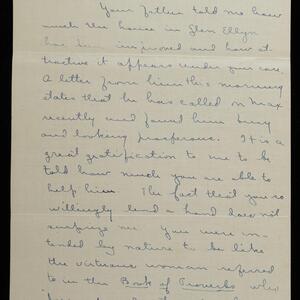 Your father told me how
much the house in Glen Ellyn
has been improved and how at-
tractive it appears under your care.
A letter from him this morning
states that he has called on Max
recently and found him busy
and looking prosperous. It is a
great gratification to me to be
told how much you are able to
help him. The fact that you so
willingly lend a hand does not
surprise me. You were in-
tended by nature to be like
the virtuous woman referred
to in the Book of Proverbs who